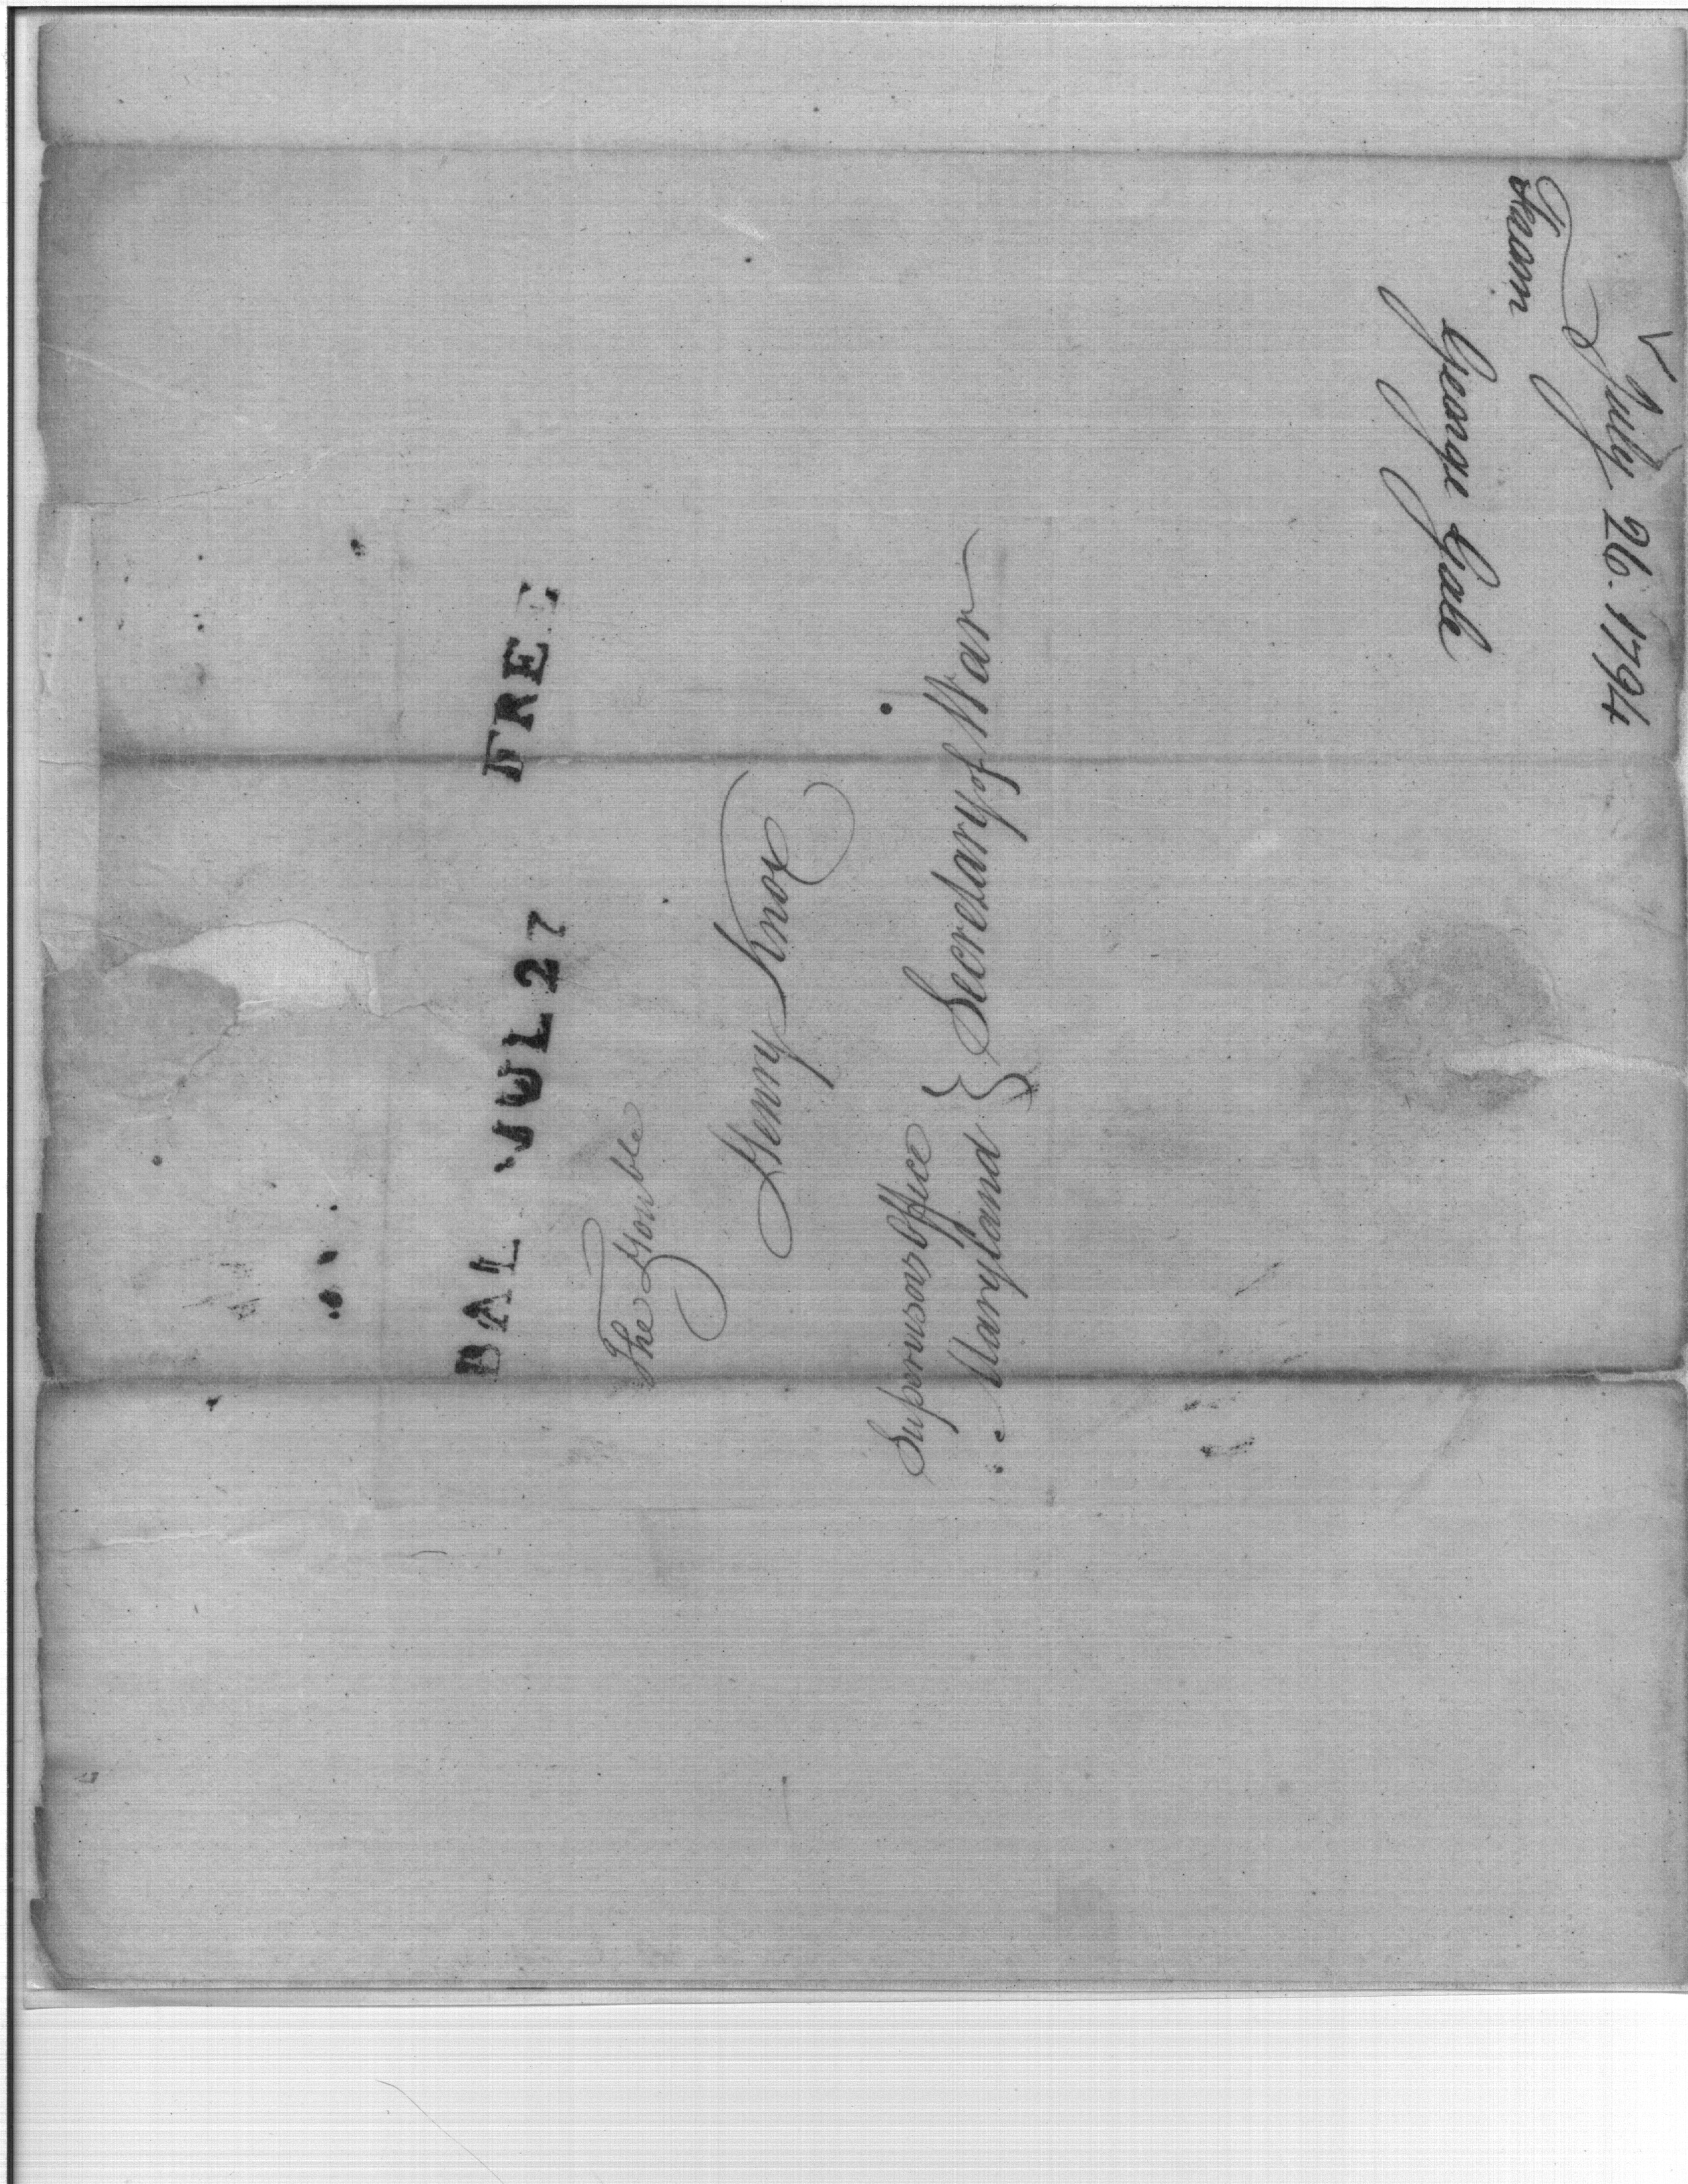 July 26. 1794
From
George Gale
BAL JUL 27 FREE
The Honble
Henry Knox
Supervisors Office
Maryland } Secretary of War